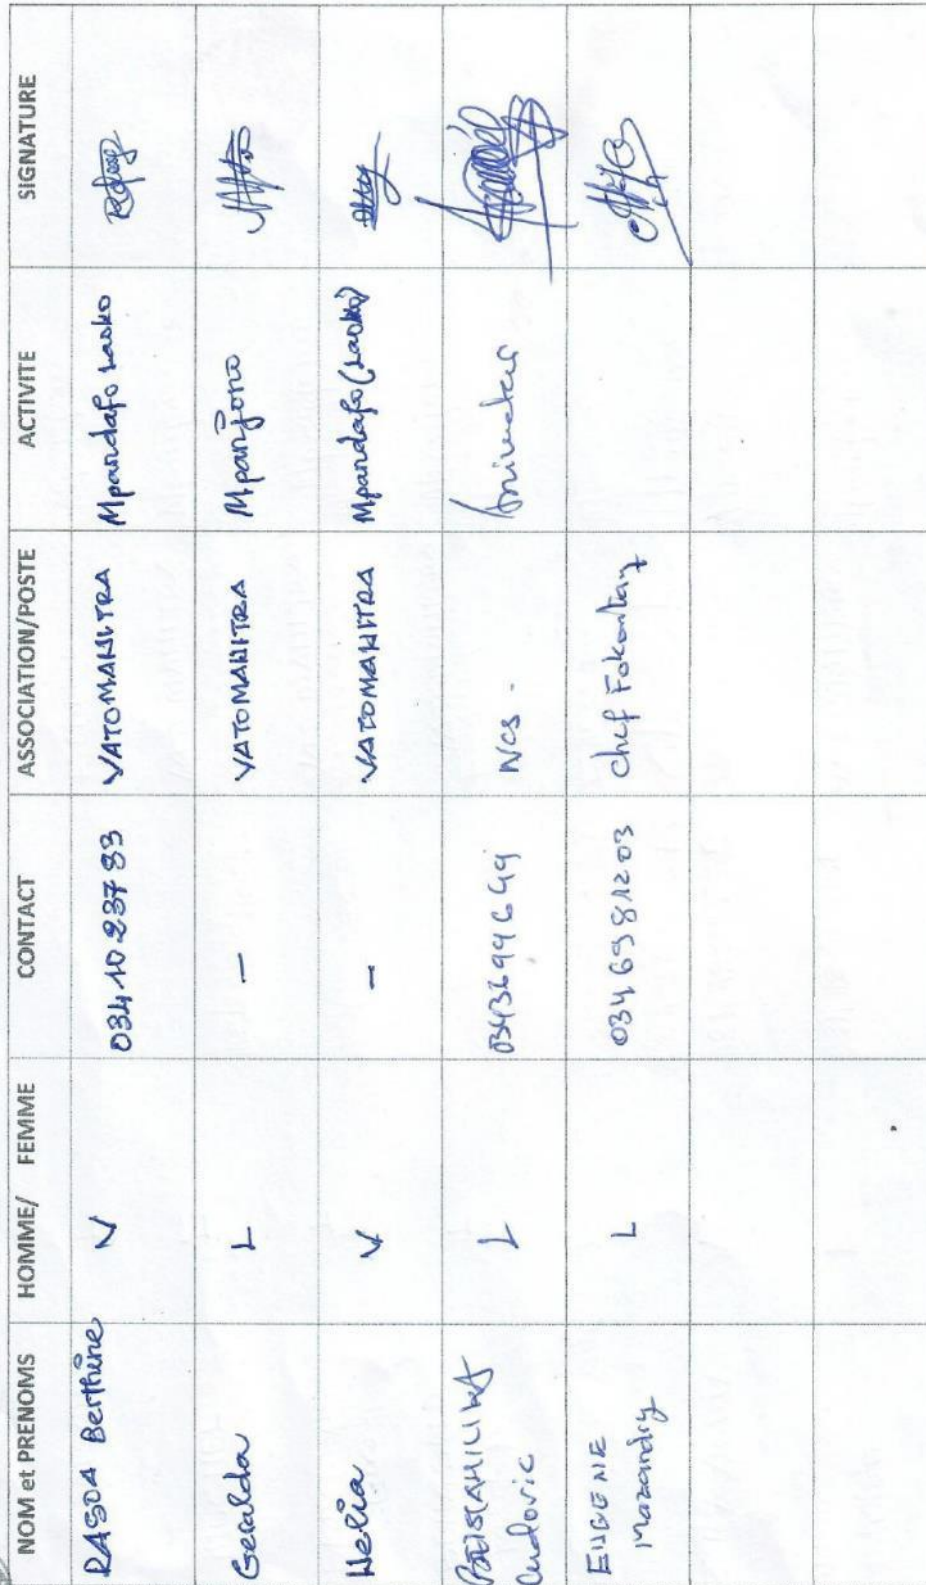 NOM et PRENOMS HOMME/ FEMME CONTACT ASSOCIATION/POSTE ACTIVITE SIGNATURE
RASOA Berthine V 034 10 237 83 VATOMANITRA Mpandafo Laoko
Geralda L — VATOMANITRA Mpanjono
Helia V — VATOMANITRA Mpandafo (Laoko)
Ludovic L NCS. Animateur
EUGENE L 034 69 812 03 chef Fokontany
Mazandry